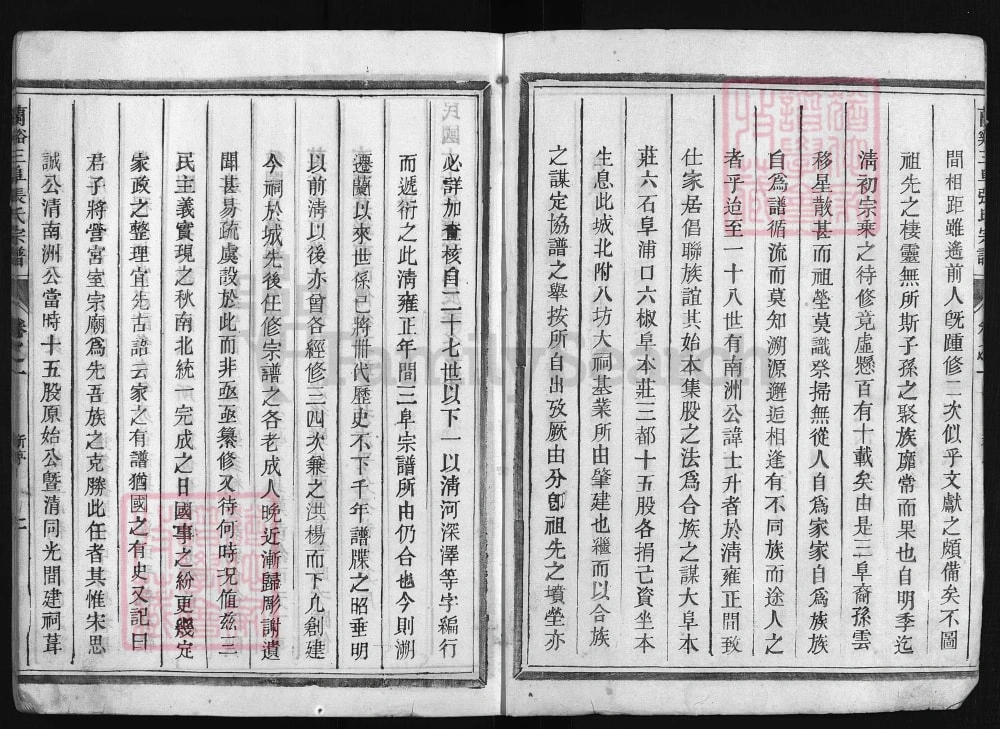 間相距雖遙前人旣踵修二次似乎文獻之頗備矣不圖
祖先之棲靈無所斯子孫之聚族靡常而果也自明季迄
清初宗乘之待修竟虛懸百有十載矣由是三阜裔孫雲
移星散甚而祖塋莫識祭掃無從人自爲家家自爲族族
自爲譜循流而莫知溯源邂逅相逢有不同族而途人之
者乎迨至一十八世有南洲公諱士升者於清雍正間致
仕家居倡聯族誼其始本集股之法爲合族之謀大阜本
莊六石阜浦口六椒阜本莊三都十五股各捐己資坐本
生息此城北附八坊大祠基業所由肇建也繼而以合族
之謀定協譜之舉按所自出攷厥由分卽祖先之墳塋亦
必詳加查核自二十七世以下一以清河深澤等字編行
而遞衍之此清雍正年間三阜宗譜所由仍合也今則溯
遷蘭以來世係已將卌代歷史不下千年譜牒之昭垂明
以前清以後亦曾各經修三四次兼之洪楊而下凡創建
今祠於城先後任修宗譜之各老成人晚近漸歸彫謝遺
聞甚易疏虞設於此而非亟亟纂修又待何時况值兹三
民主義實現之秋南北統一完成之日國事之紛更幾定
家政之整理宜先古語云家之有譜猶國之有史又記曰
君子將營宮室宗廟爲先吾族之克勝此任者其惟宋思
誠公清南洲公當時十五股原始公曁清同光間建祠葺
蘭谿三阜張氏宗譜
卷之一
新序
二
FamilySearch